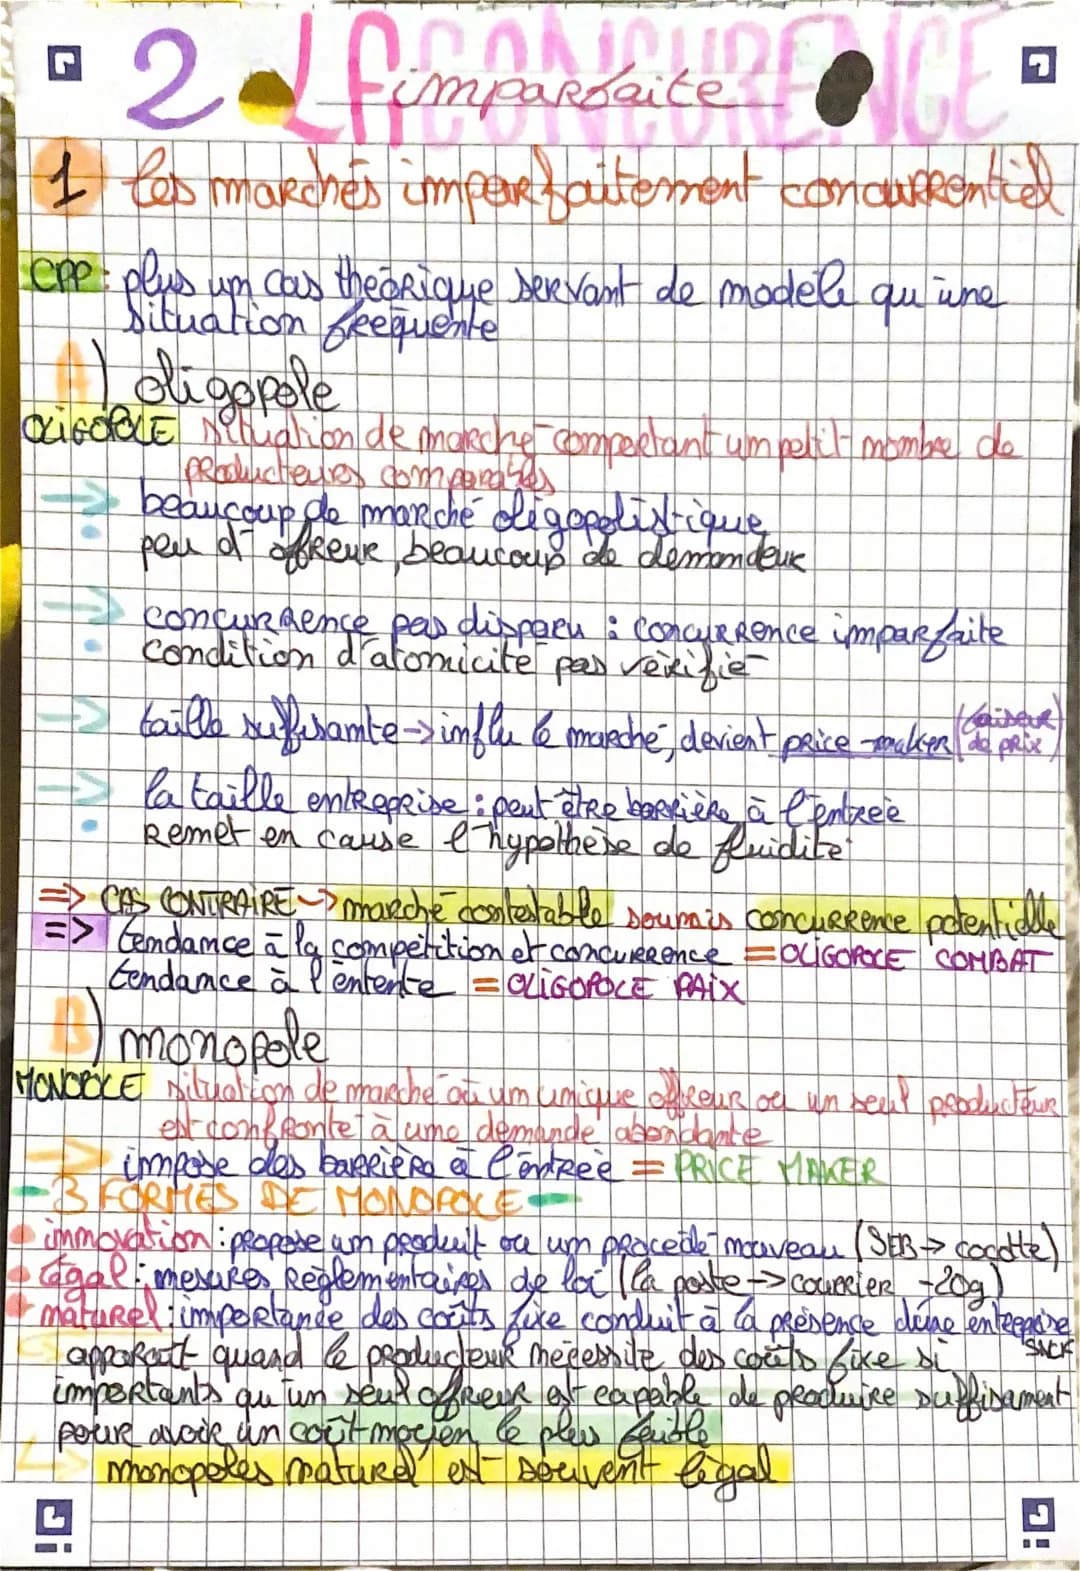 2 LA CONCURENCE
imparfaite
1 les marchés imparfaitement concurrentiel
CPP : plus un cas théorique servant de modèle qu'une
situation freéquente
A) oligopole
OLIGOPOLE situation de marché comportant un petit nombre de
producteurs comparables
→ beaucoup de marché oligopolistique
• peu d'offreur, beaucoup de demandeur
→ concurrence pas disparu : concurrence imparfaite
• condition d'atomicité pas vérifié
→ taille suffisante → influ le marché, devient price-maker (faiseur
de prix)
→ la taille entreprise : peut être barrière à l'entrée
• Remet en cause l'hypothèse de fluidité
=> CAS CONTRAIRE → marché contestable soumais concurrence potentielle
=> tendance à la compétition et concurrence = OLIGOPOLE COMBAT
tendance à l'entente = OLIGOPOLE PAIX
B) monopole
MONOPOLE situation de marché où un unique offreur ou un seul producteur
est confronté à une demande abondante
→ impose des barrière à l'entrée = PRICE MAKER
- 3 FORMES DE MONOPOLE -
• innovation : propose un produit ou un procédé nouveau (SEB → cocotte)
• légal : mesures réglementaires de loi (la poste → courrier -20g)
• naturel : importance des coûts fixe conduit à la présence d'une entreprise
SNCF
apparait quand le producteur nécessite des coûts fixe si
importants qu'un seul offreur est capable de produire suffisament
pour avoir un coût moyen le plus faible
↳ monopoles naturel est souvent légal